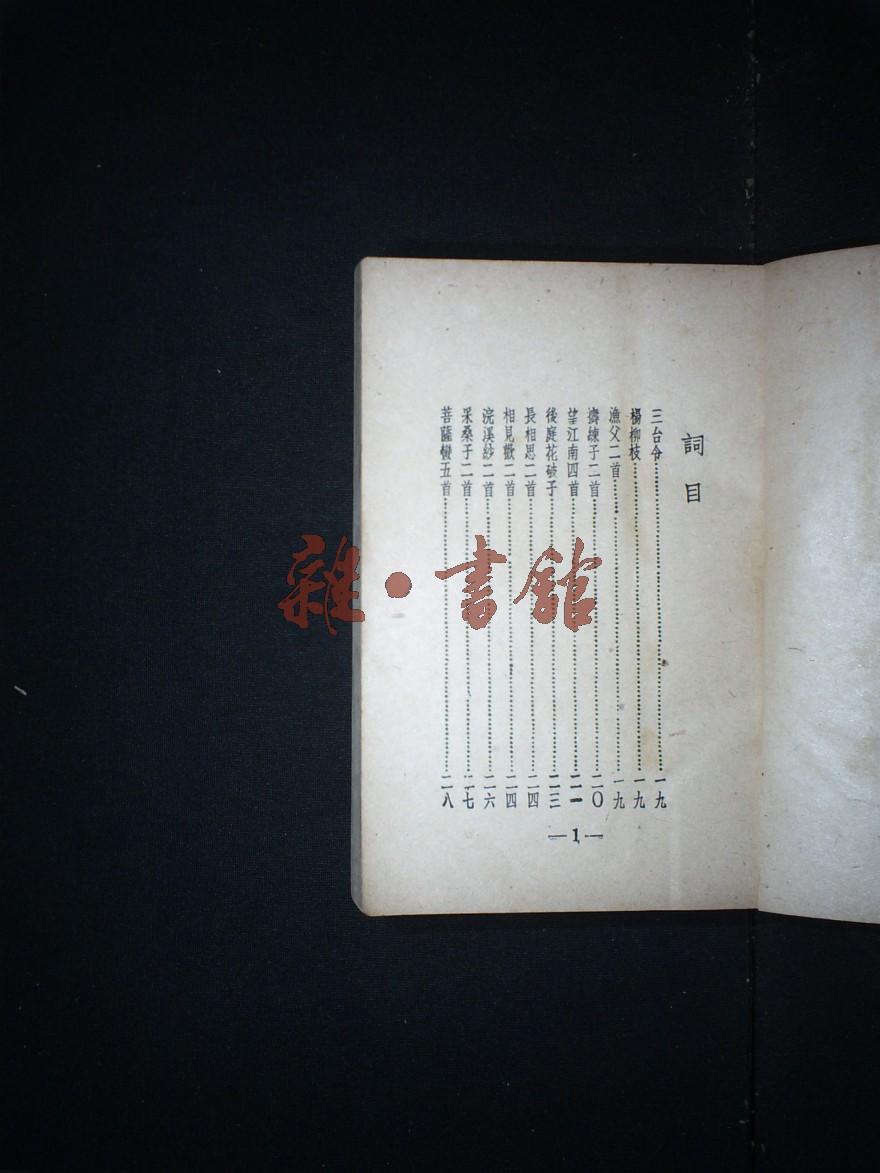 詞目
三台令……一九
楊柳枝……一九
漁父二首……一九
擣練子二首……二〇
望江南四首……二一
後庭花破子……二三
長相思二首……二四
相見歡二首……二四
浣溪紗二首……二六
采桑子二首……二七
菩薩蠻五首……二八
—1—
雜·書館